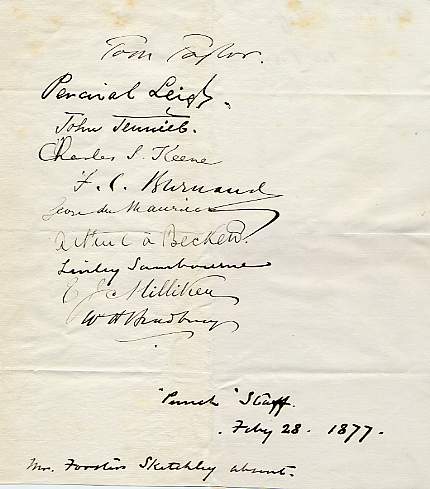 Tom Taylor.
Percival Leigh.
John Tenniel.
Charles S. Keene
F. C. Burnand
George du Maurier
Arthur à Beckett.
Linley Sambourne
E J Milliken
W H Bradbury
"Punch" Staff.
Feby 28. 1877.
Mr. Forster's Sketchley absent.